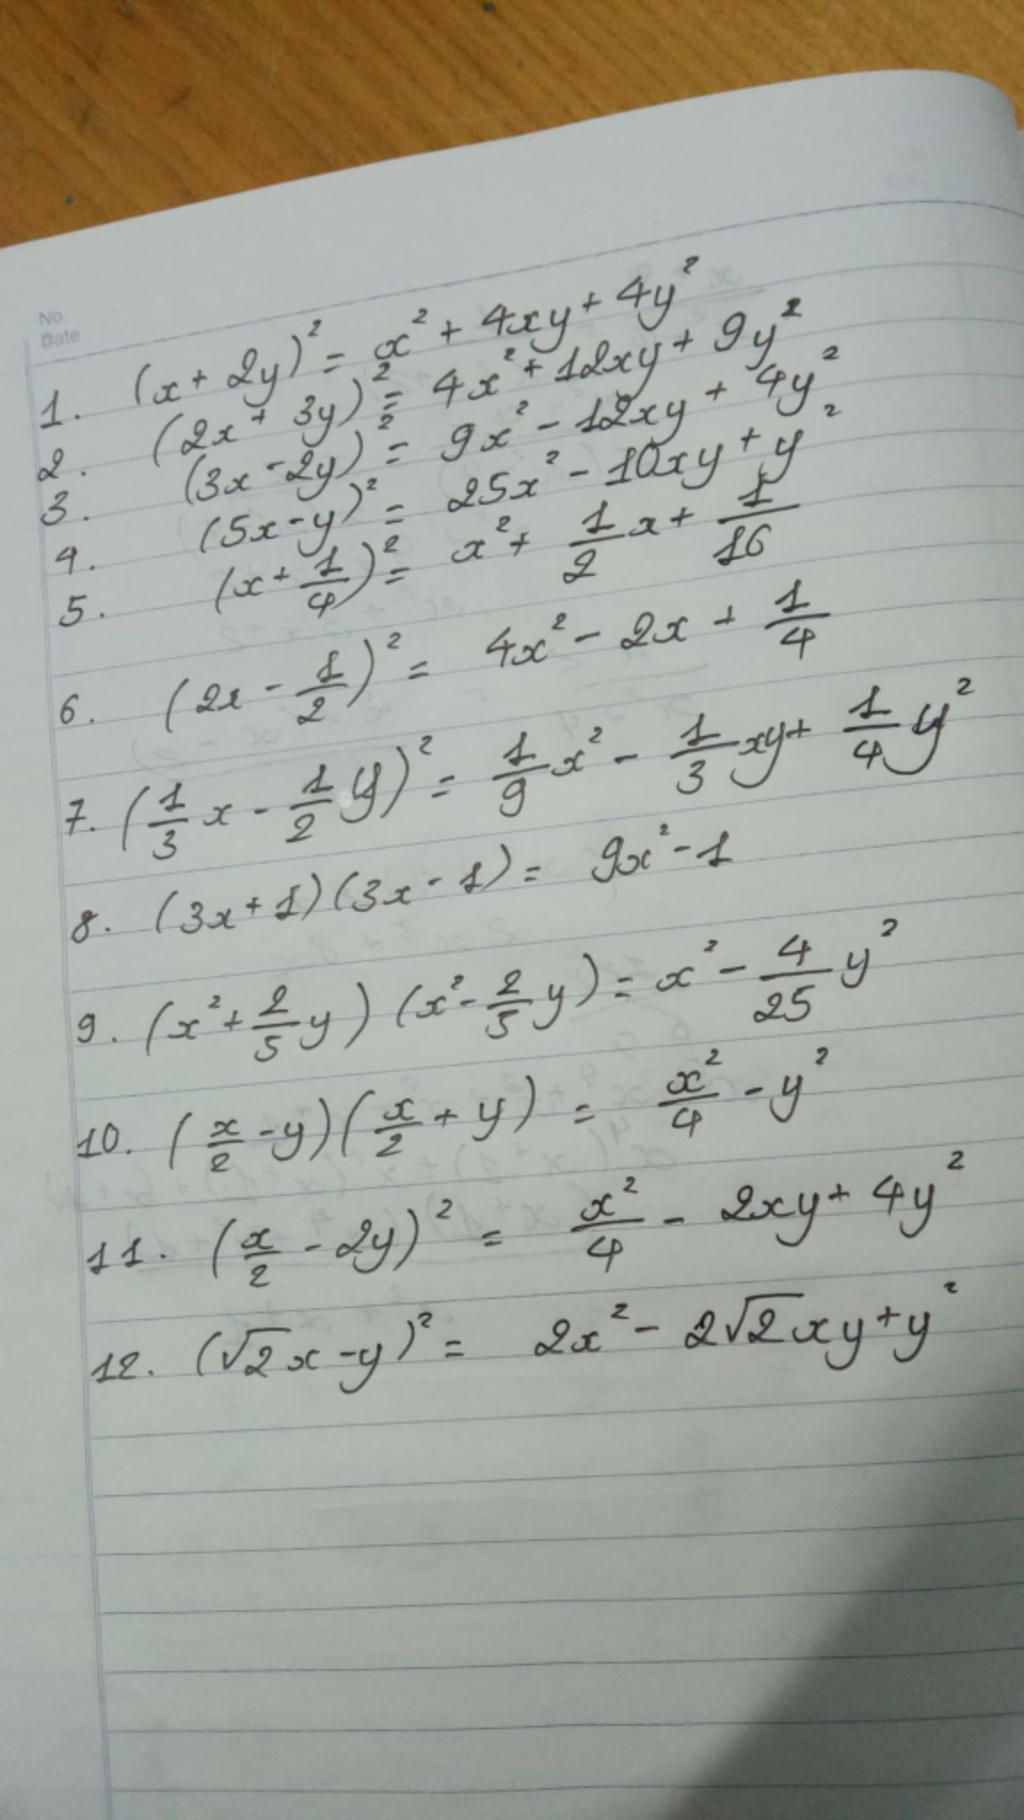 No.
Date
1. (x + 2y)² = x² + 4xy + 4y²
2. (2x + 3y)² = 4x² + 12xy + 9y²
3. (3x - 2y)² = 9x² - 12xy + 4y²
4. (5x - y)² = 25x² - 10xy + y²
5. (x + 1/4)² = x² + 1/2 x + 1/16
6. (2x - 1/2)² = 4x² - 2x + 1/4
7. (1/3 x - 1/2 y)² = 1/9 x² - 1/3 xy + 1/4 y²
8. (3x + 1)(3x - 1) = 9x² - 1
9. (x² + 2/5 y)(x² - 2/5 y) = x² - 4/25 y²
10. (x/2 - y)(x/2 + y) = x²/4 - y²
11. (x/2 - 2y)² = x²/4 - 2xy + 4y²
12. (√2x - y)² = 2x² - 2√2xy + y²